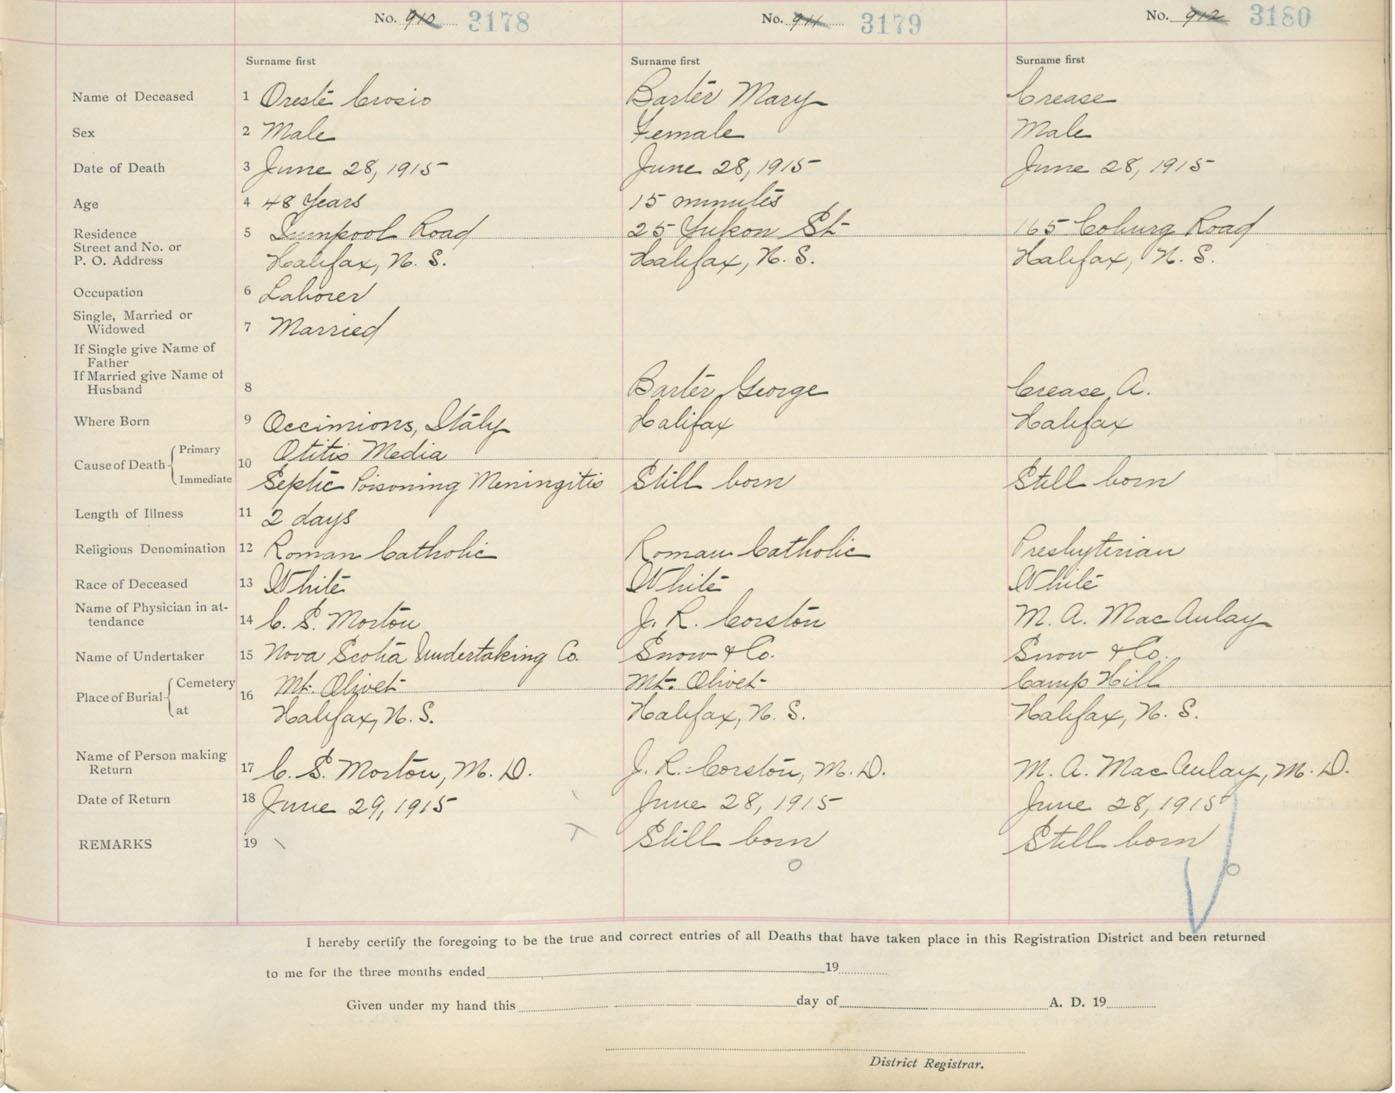 No. 910 3178 No. 911 3179 No. 912 3180
Surname first Surname first Surname first
Name of Deceased 1 Oreste Crosio Barter Mary Crease
Sex 2 Male Female Male
Date of Death 3 June 28, 1915 June 28, 1915 June 28, 1915
Age 4 48 Years 15 minutes
Residence 5 Road 25 Yukon St 165 Coburg Road
Street and No. or
P. O. Address Halifax, N. S. Halifax, N. S. Halifax, N. S.
Occupation 6 Laborer
Single, Married or
Widowed 7 Married
If Single give Name of
Father
If Married give Name of
Husband 8 Barter George Crease A.
Where Born 9 Italy Halifax Halifax
Cause of Death Primary 10 Otitis Media
Immediate Septic Poisoning Meningitis Still born Still born
Length of Illness 11 2 days
Religious Denomination 12 Roman Catholic Roman Catholic Presbyterian
Race of Deceased 13 White White White
Name of Physician in at-
tendance 14 C. S. Morton J. R. Corston M. A. MacAulay
Name of Undertaker 15 Nova Scotia Undertaking Co. Snow & Co. Snow & Co.
Place of Burial Cemetery 16 Mt. Olivet Mt. Olivet Camp Hill
at Halifax, N. S. Halifax, N. S. Halifax, N. S.
Name of Person making
Return 17 C. S. Morton, M. D. J. R. Corston, M. D. M. A. MacAulay, M. D.
Date of Return 18 June 29, 1915 June 28, 1915 June 28, 1915
REMARKS 19 Still born Still born
I hereby certify the foregoing to be the true and correct entries of all Deaths that have taken place in this Registration District and been returned
to me for the three months ended 19
Given under my hand this day of A. D. 19
District Registrar.